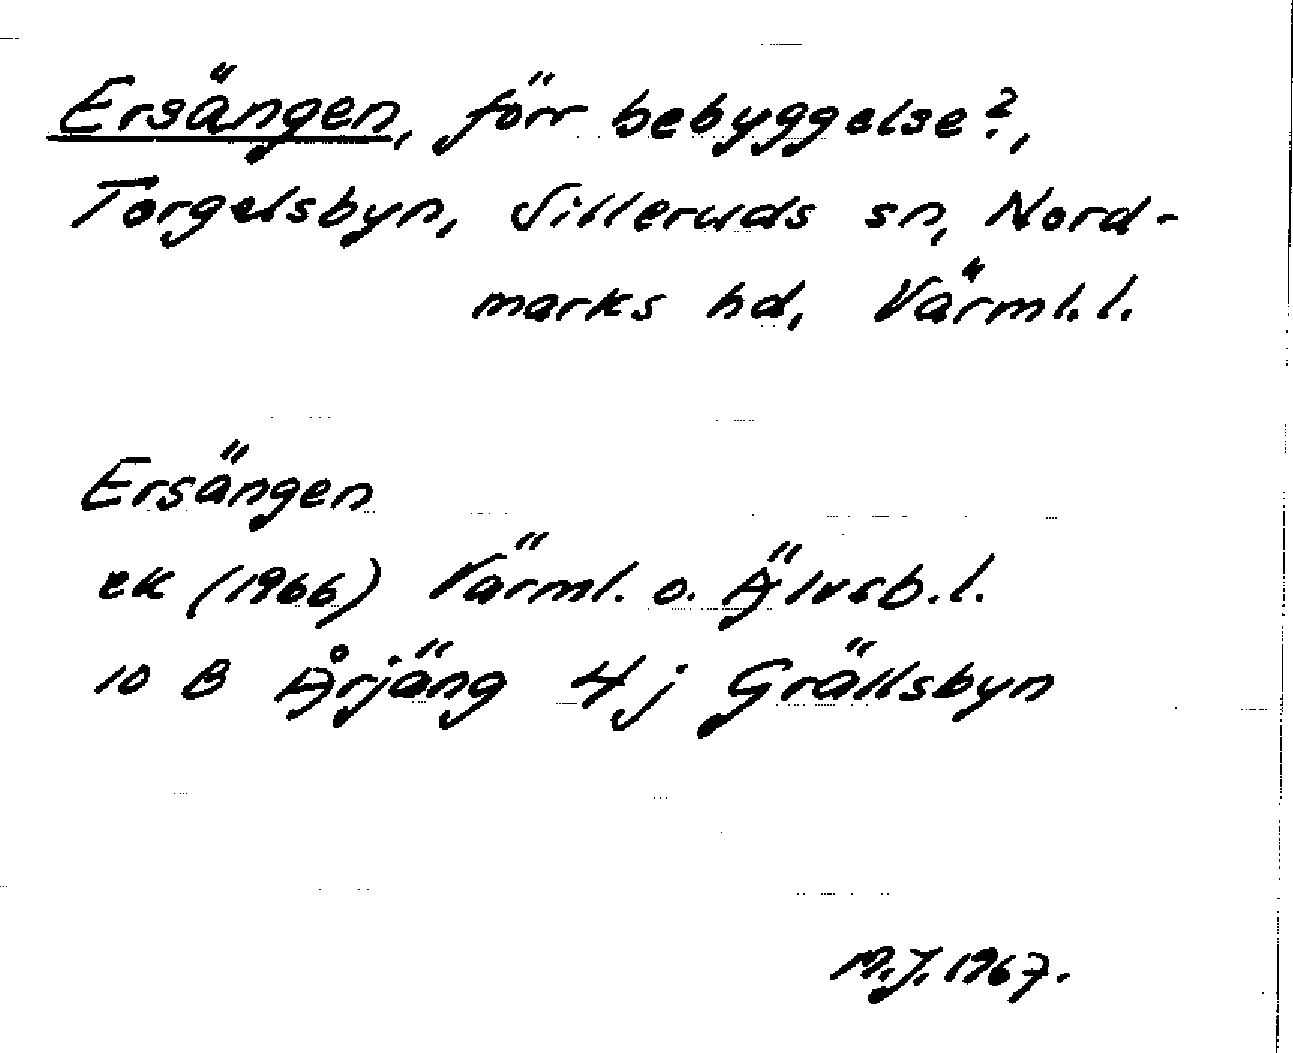 Ersängen, förr bebyggelse?,
Torgelsbyn, Silleruds sn, Nord-
marks hd, Värml.l.
Ersängen
ek (1966) Värml. o. Älvsb.l.
10 B Årjäng 4j Grällsbyn
M.J. 1967.